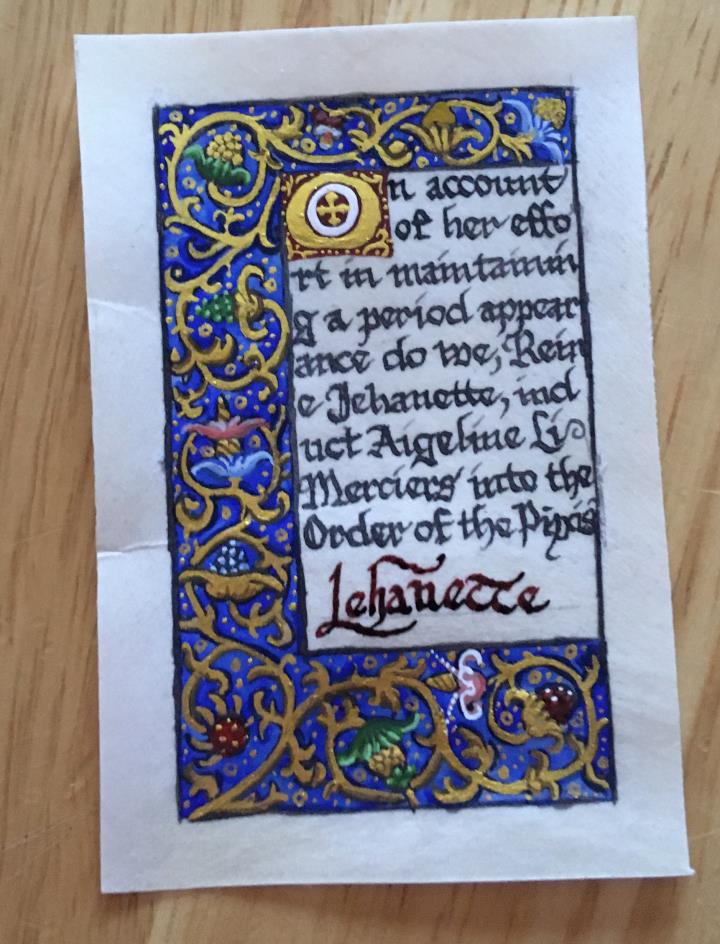 On account
of her effo
rt in maintainin
g a period appear
ance do we, Rein
e Jehanette, ind
uct Aigeline Li
Merciers into the
Order of the Pipes
Jehanette